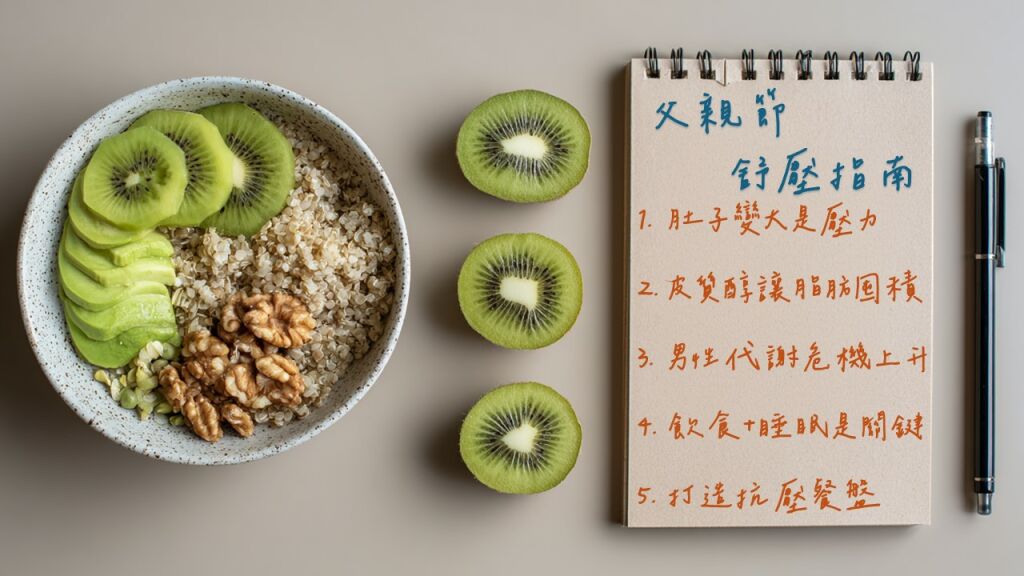 父親節
舒壓指南
1. 肚子變大是壓力
2. 皮質醇讓脂肪囤積
3. 男性代謝危機上升
4. 飲食+睡眠是關鍵
5. 打造抗壓餐盤